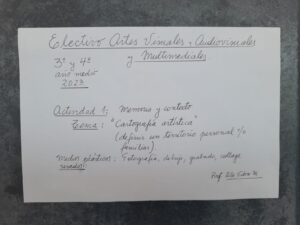 Electivo Artes Visuales, Audiovisuales
y Multimediales.
3º y 4º
año medio
2023
Actividad 1: Memoria y contexto
Tema: "Cartografía artística"
(definir un territorio personal y/o
familiar)
Medios plásticos: Fotografía, dibujo, grabado, collage
Prof.